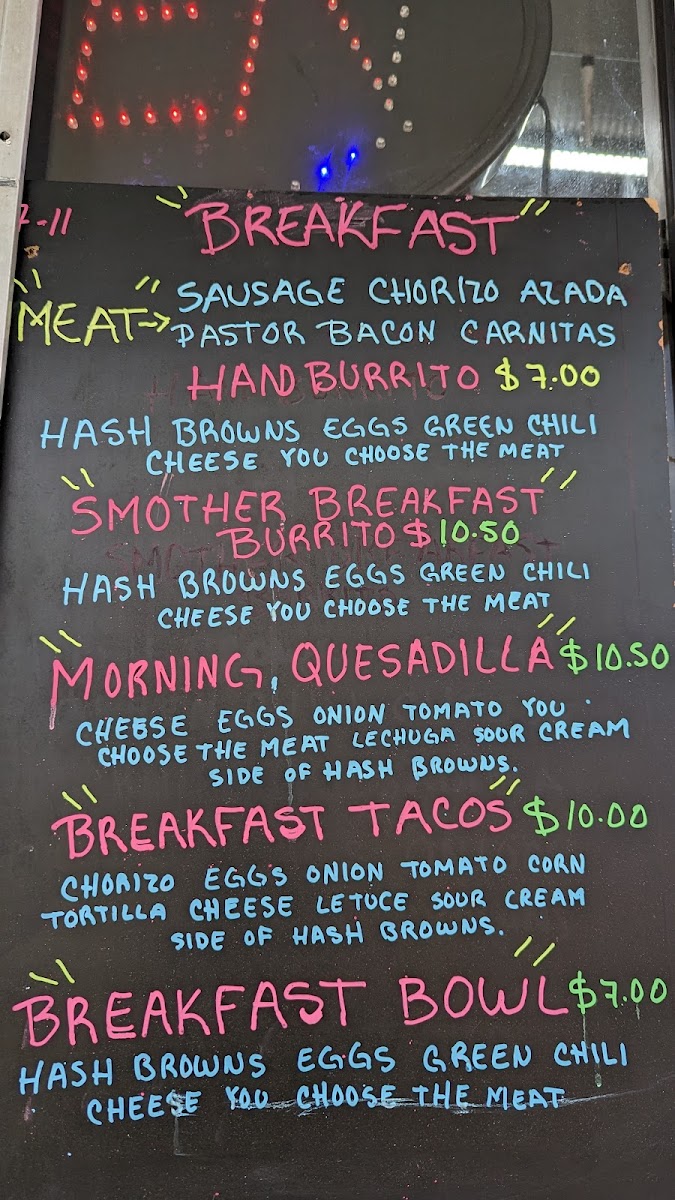 7-11
BREAKFAST
MEAT→
SAUSAGE CHORIZO AZADA
PASTOR BACON CARNITAS
HAND BURRITO $7.00
HASH BROWNS EGGS GREEN CHILI
CHEESE YOU CHOOSE THE MEAT
SMOTHER BREAKFAST
BURRITO $10.50
HASH BROWNS EGGS GREEN CHILI
CHEESE YOU CHOOSE THE MEAT
MORNING, QUESADILLA $10.50
CHEESE EGGS ONION TOMATO YOU
CHOOSE THE MEAT LECHUGA SOUR CREAM
SIDE OF HASH BROWNS.
BREAKFAST TACOS $10.00
CHORIZO EGGS ONION TOMATO CORN
TORTILLA CHEESE LETUCE SOUR CREAM
SIDE OF HASH BROWNS.
BREAKFAST BOWL $7.00
HASH BROWNS EGGS GREEN CHILI
CHEESE YOU CHOOSE THE MEAT